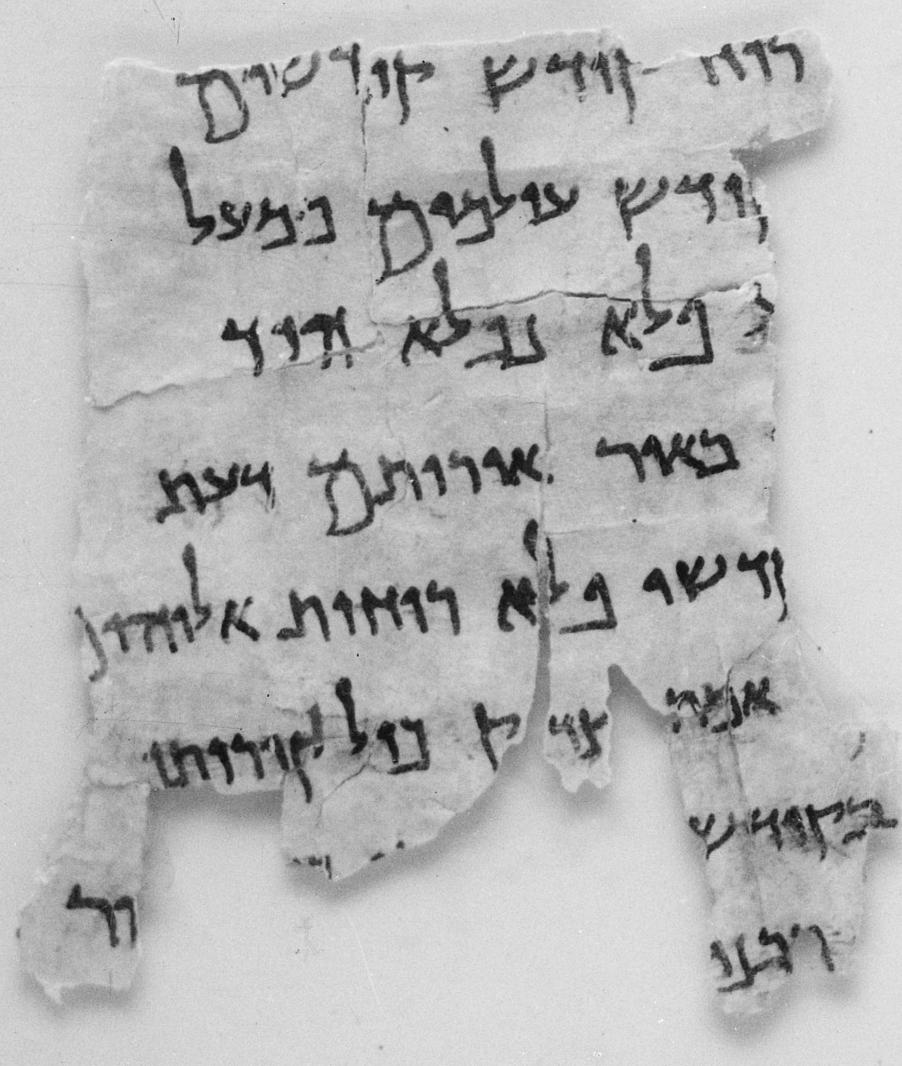 רוח קודש קודשים
קודש עולמים ממעל
פלא נפלא הוד
באור אורותם דעת
קודשו פלא רוחות אלוהין
אמת צדק כול קורותו
בקודש